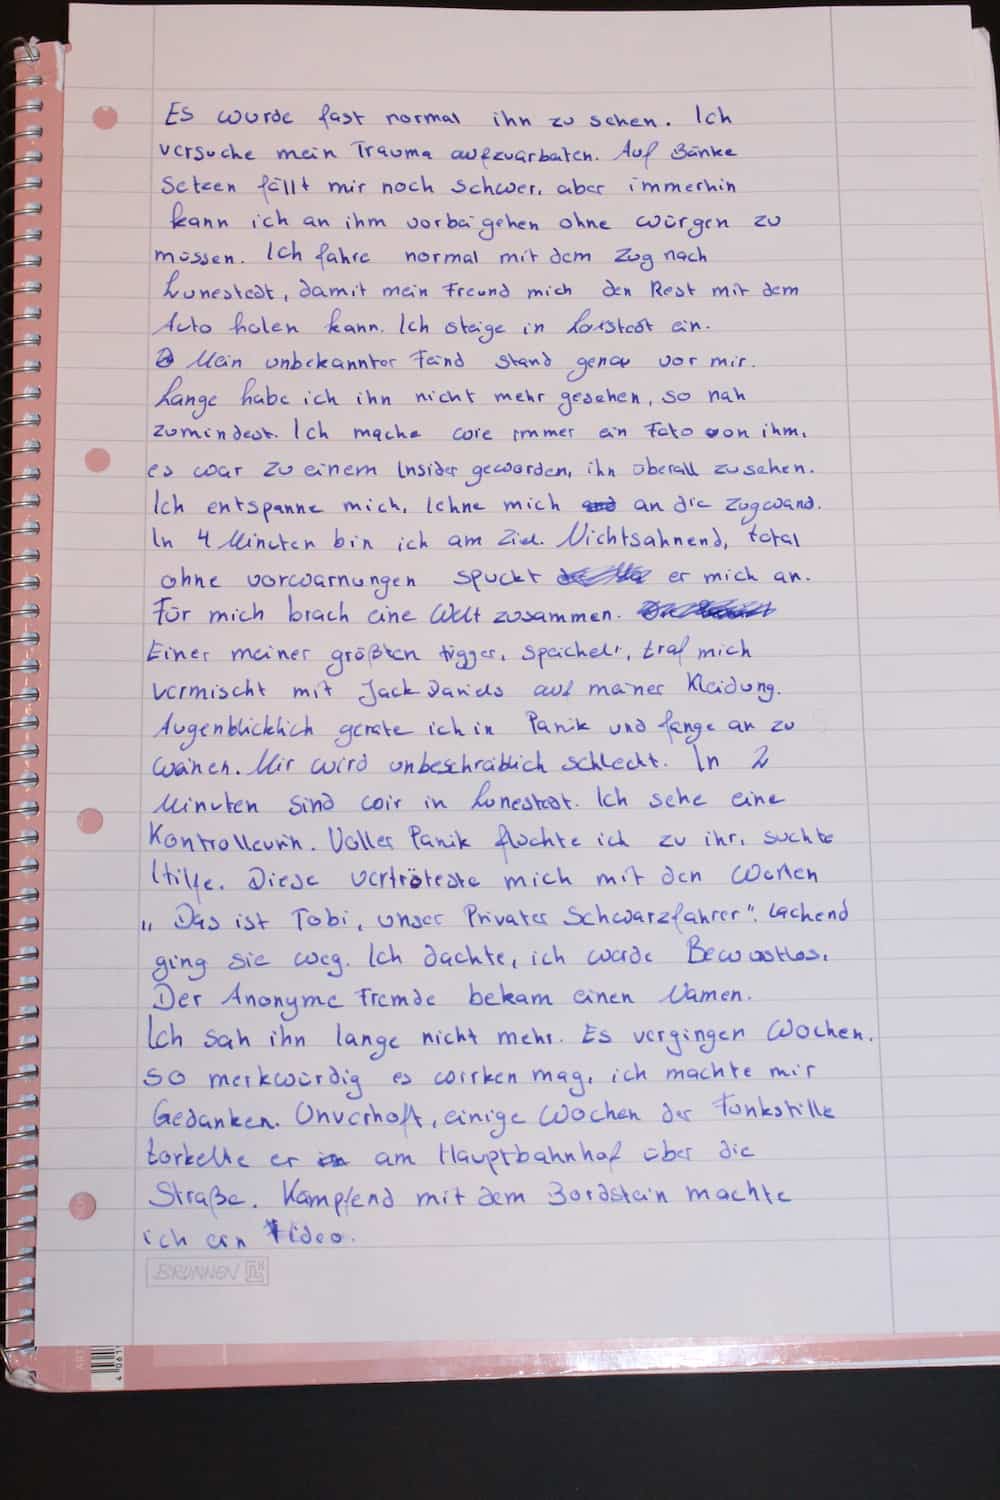 Es wurde fast normal ihn zu sehen. Ich
versuche mein Trauma aufzuarbaten. Auf Bänke
Setzen fällt mir noch schwer, aber immerhin
kann ich an ihm vorbeigehen ohne würgen zu
müssen. Ich fahre normal mit dem Zug nach
Lunestedt, damit mein Freund mich den Rest mit dem
Auto holen kann. Ich steige in Loxstedt ein.
Mein unbekannter Feind stand genau vor mir.
Lange habe ich ihn nicht mehr gesehen, so nah
zumindest. Ich mache wie immer ein Foto von ihm,
es war zu einem Insider geworden, ihn überall zu sehen.
Ich entspanne mich, lehne mich an die Zugwand.
In 4 Minuten bin ich am Ziel. Nichtsahnend, total
ohne vorwarnungen spuckt er mich an.
Für mich brach eine Welt zusammen.
Einer meiner größten trigger, Speichel, traf mich
vermischt mit Jack Daniels auf meiner Kleidung.
Augenblicklich gerate ich in Panik und fange an zu
weinen. Mir wird unbeschreiblich schlecht. In 2
Minuten sind wir in Lunestedt. Ich sehe eine
Kontrolleurin. Voller Panik flüchte ich zu ihr, suchte
Hilfe. Diese vertröteste mich mit den Worten
„Das ist Tobi, unser Privater Schwarzfahrer“. Lachend
ging sie weg. Ich dachte, ich werde Bewustlos.
Der Anonyme Fremde bekam einen Namen.
Ich sah ihn lange nicht mehr. Es vergingen Wochen.
So merkwürdig es wirken mag, ich machte mir
Gedanken. Unverhoft, einige Wochen der Funkstille
torkelte er am Hauptbahnhof über die
Straße. Kämpfend mit dem Bordstein machte
ich ein Video.
BRUNNEN